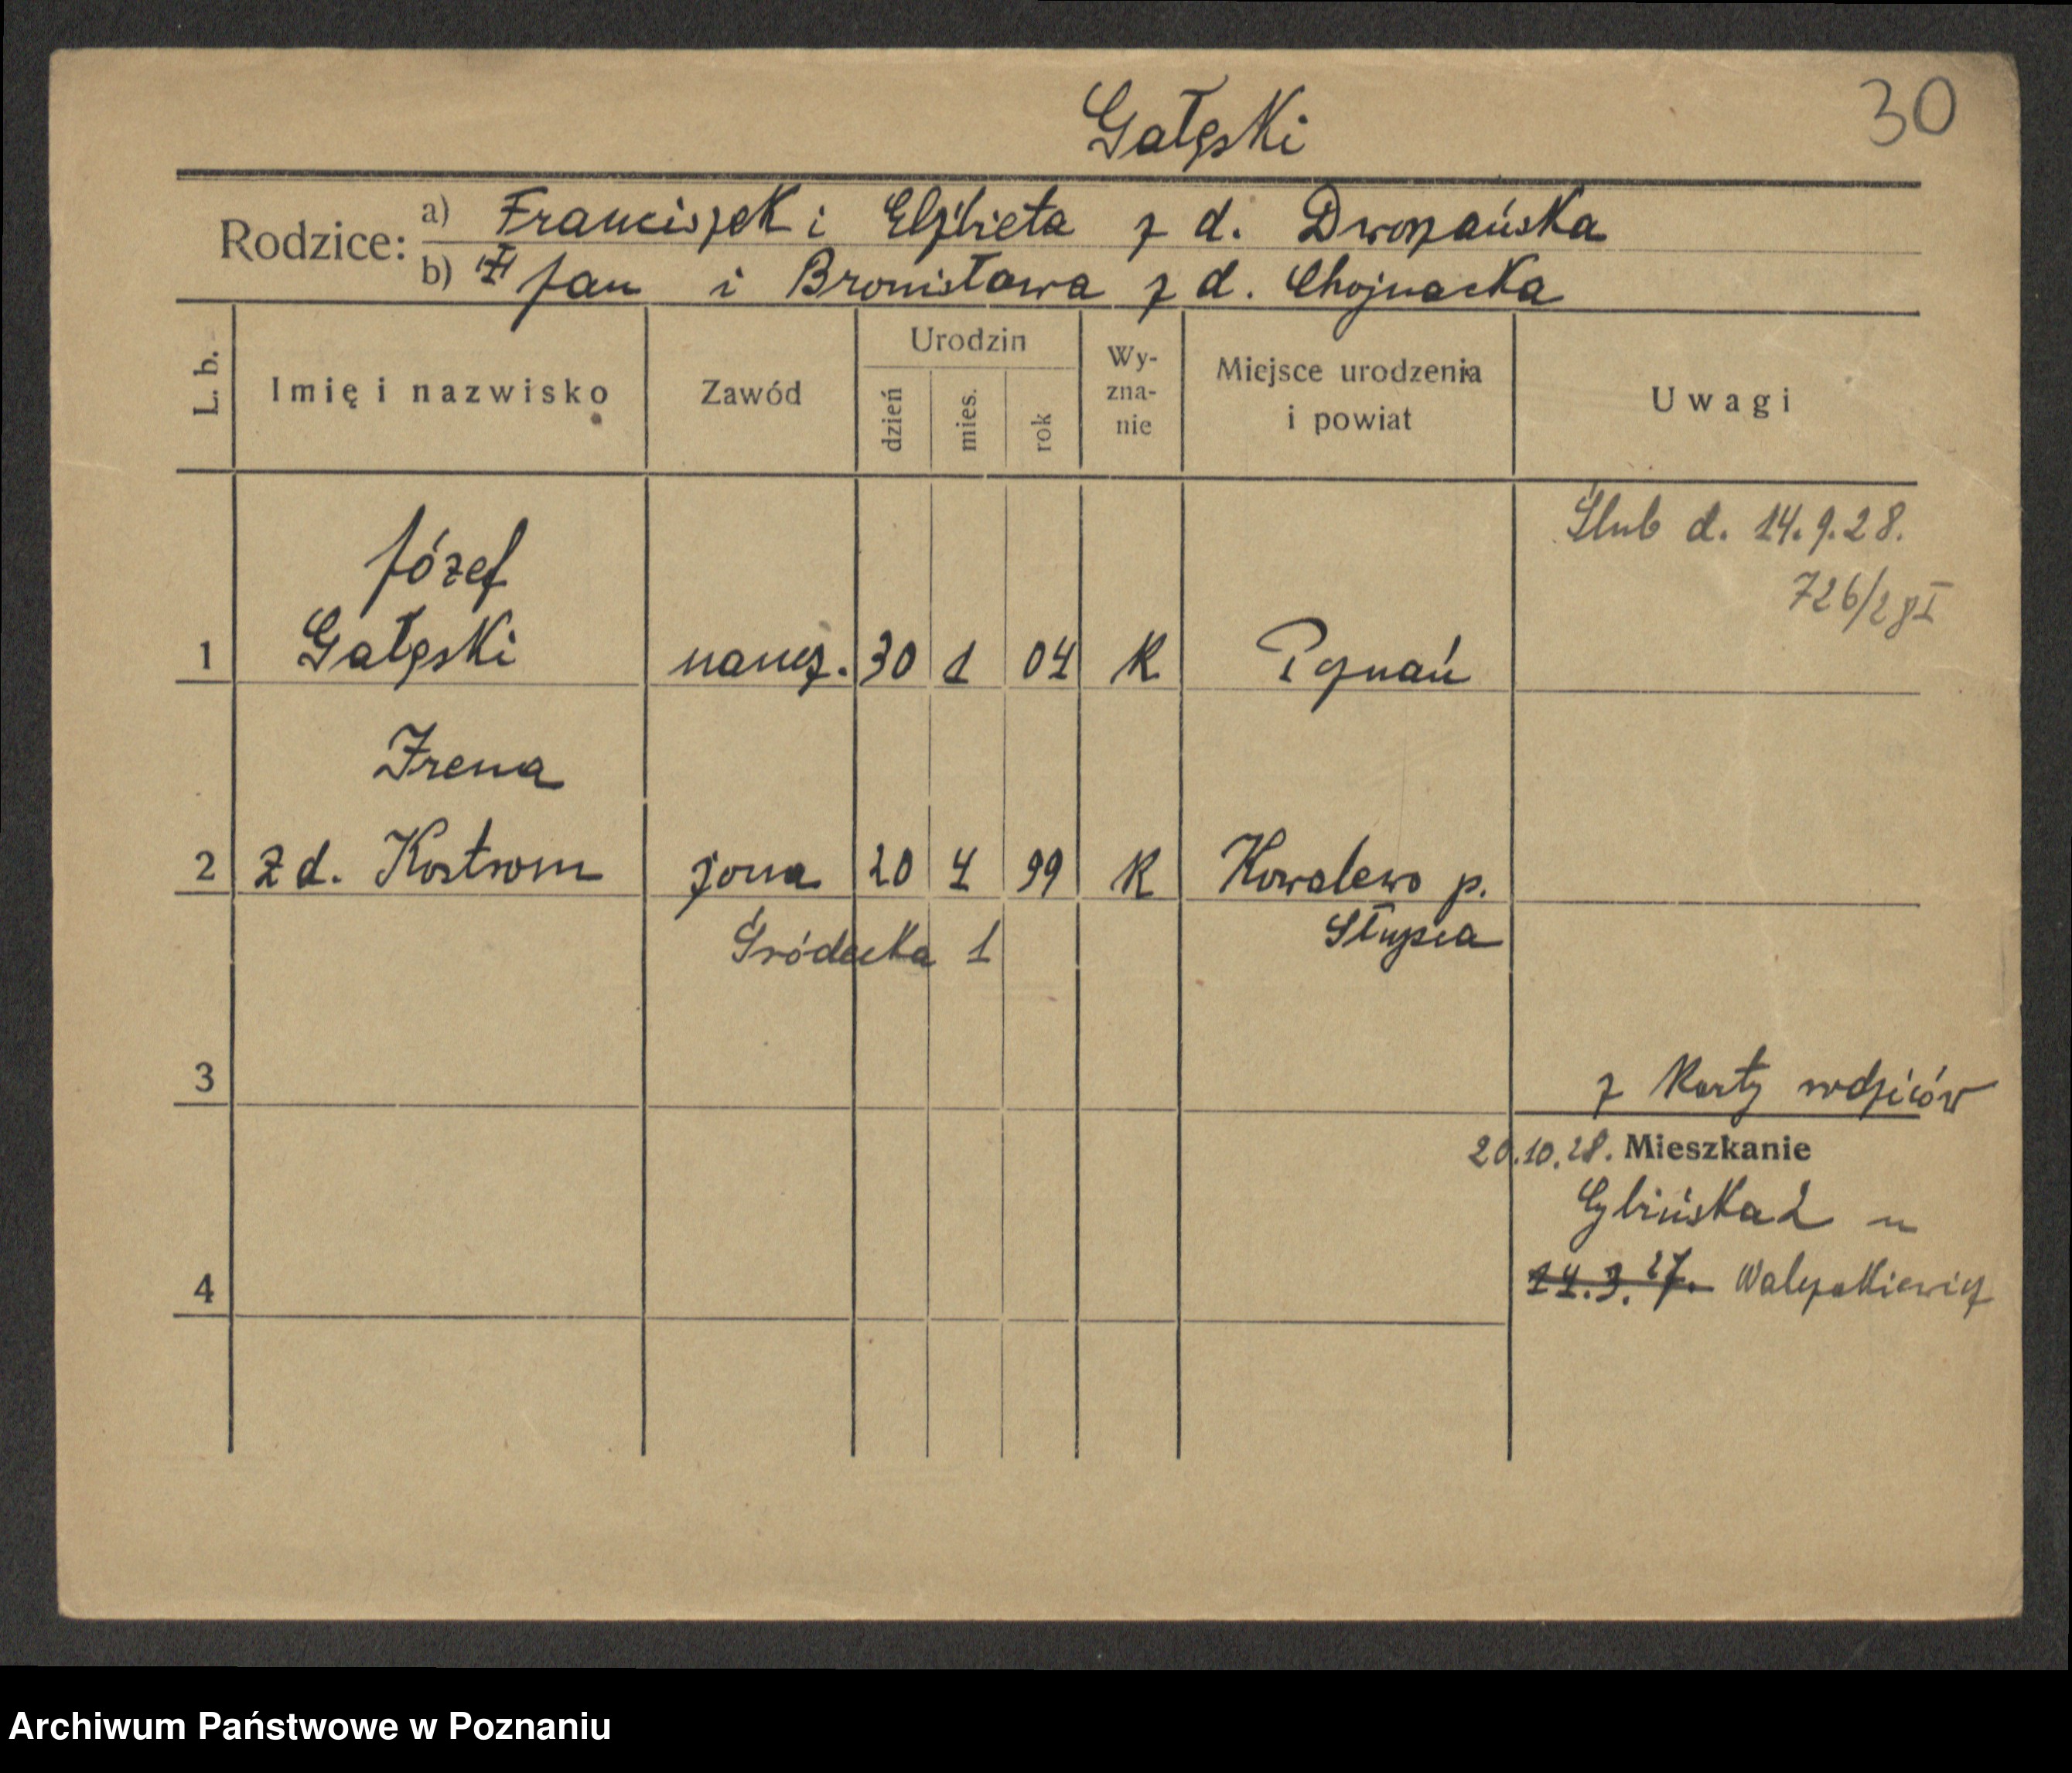 Gałęski
30
Rodzice:
a) Franciszek i Elżbieta z d. Dworzańska
b) Jan i Bronisława z d. Chojnacka
L. b.
Imię i nazwisko
Zawód
Urodzin
dzień
mies.
rok
Wy-
zna-
nie
Miejsce urodzenia
i powiat
Uwagi
Ślub d. 14.9.28.
726/28 I
Józef
1 Gałęski naucz. 30 1 04 K Poznań
Irena
2 z d. Kostrom żona 20 4 99 K Kowalewo p.
Słupca
Śródecka 1
3
z Karty rodziców
20.10.28. Mieszkanie
Cybińska 2 u
14.3.27. Walczakiewicz
4
Archiwum Państwowe w Poznaniu